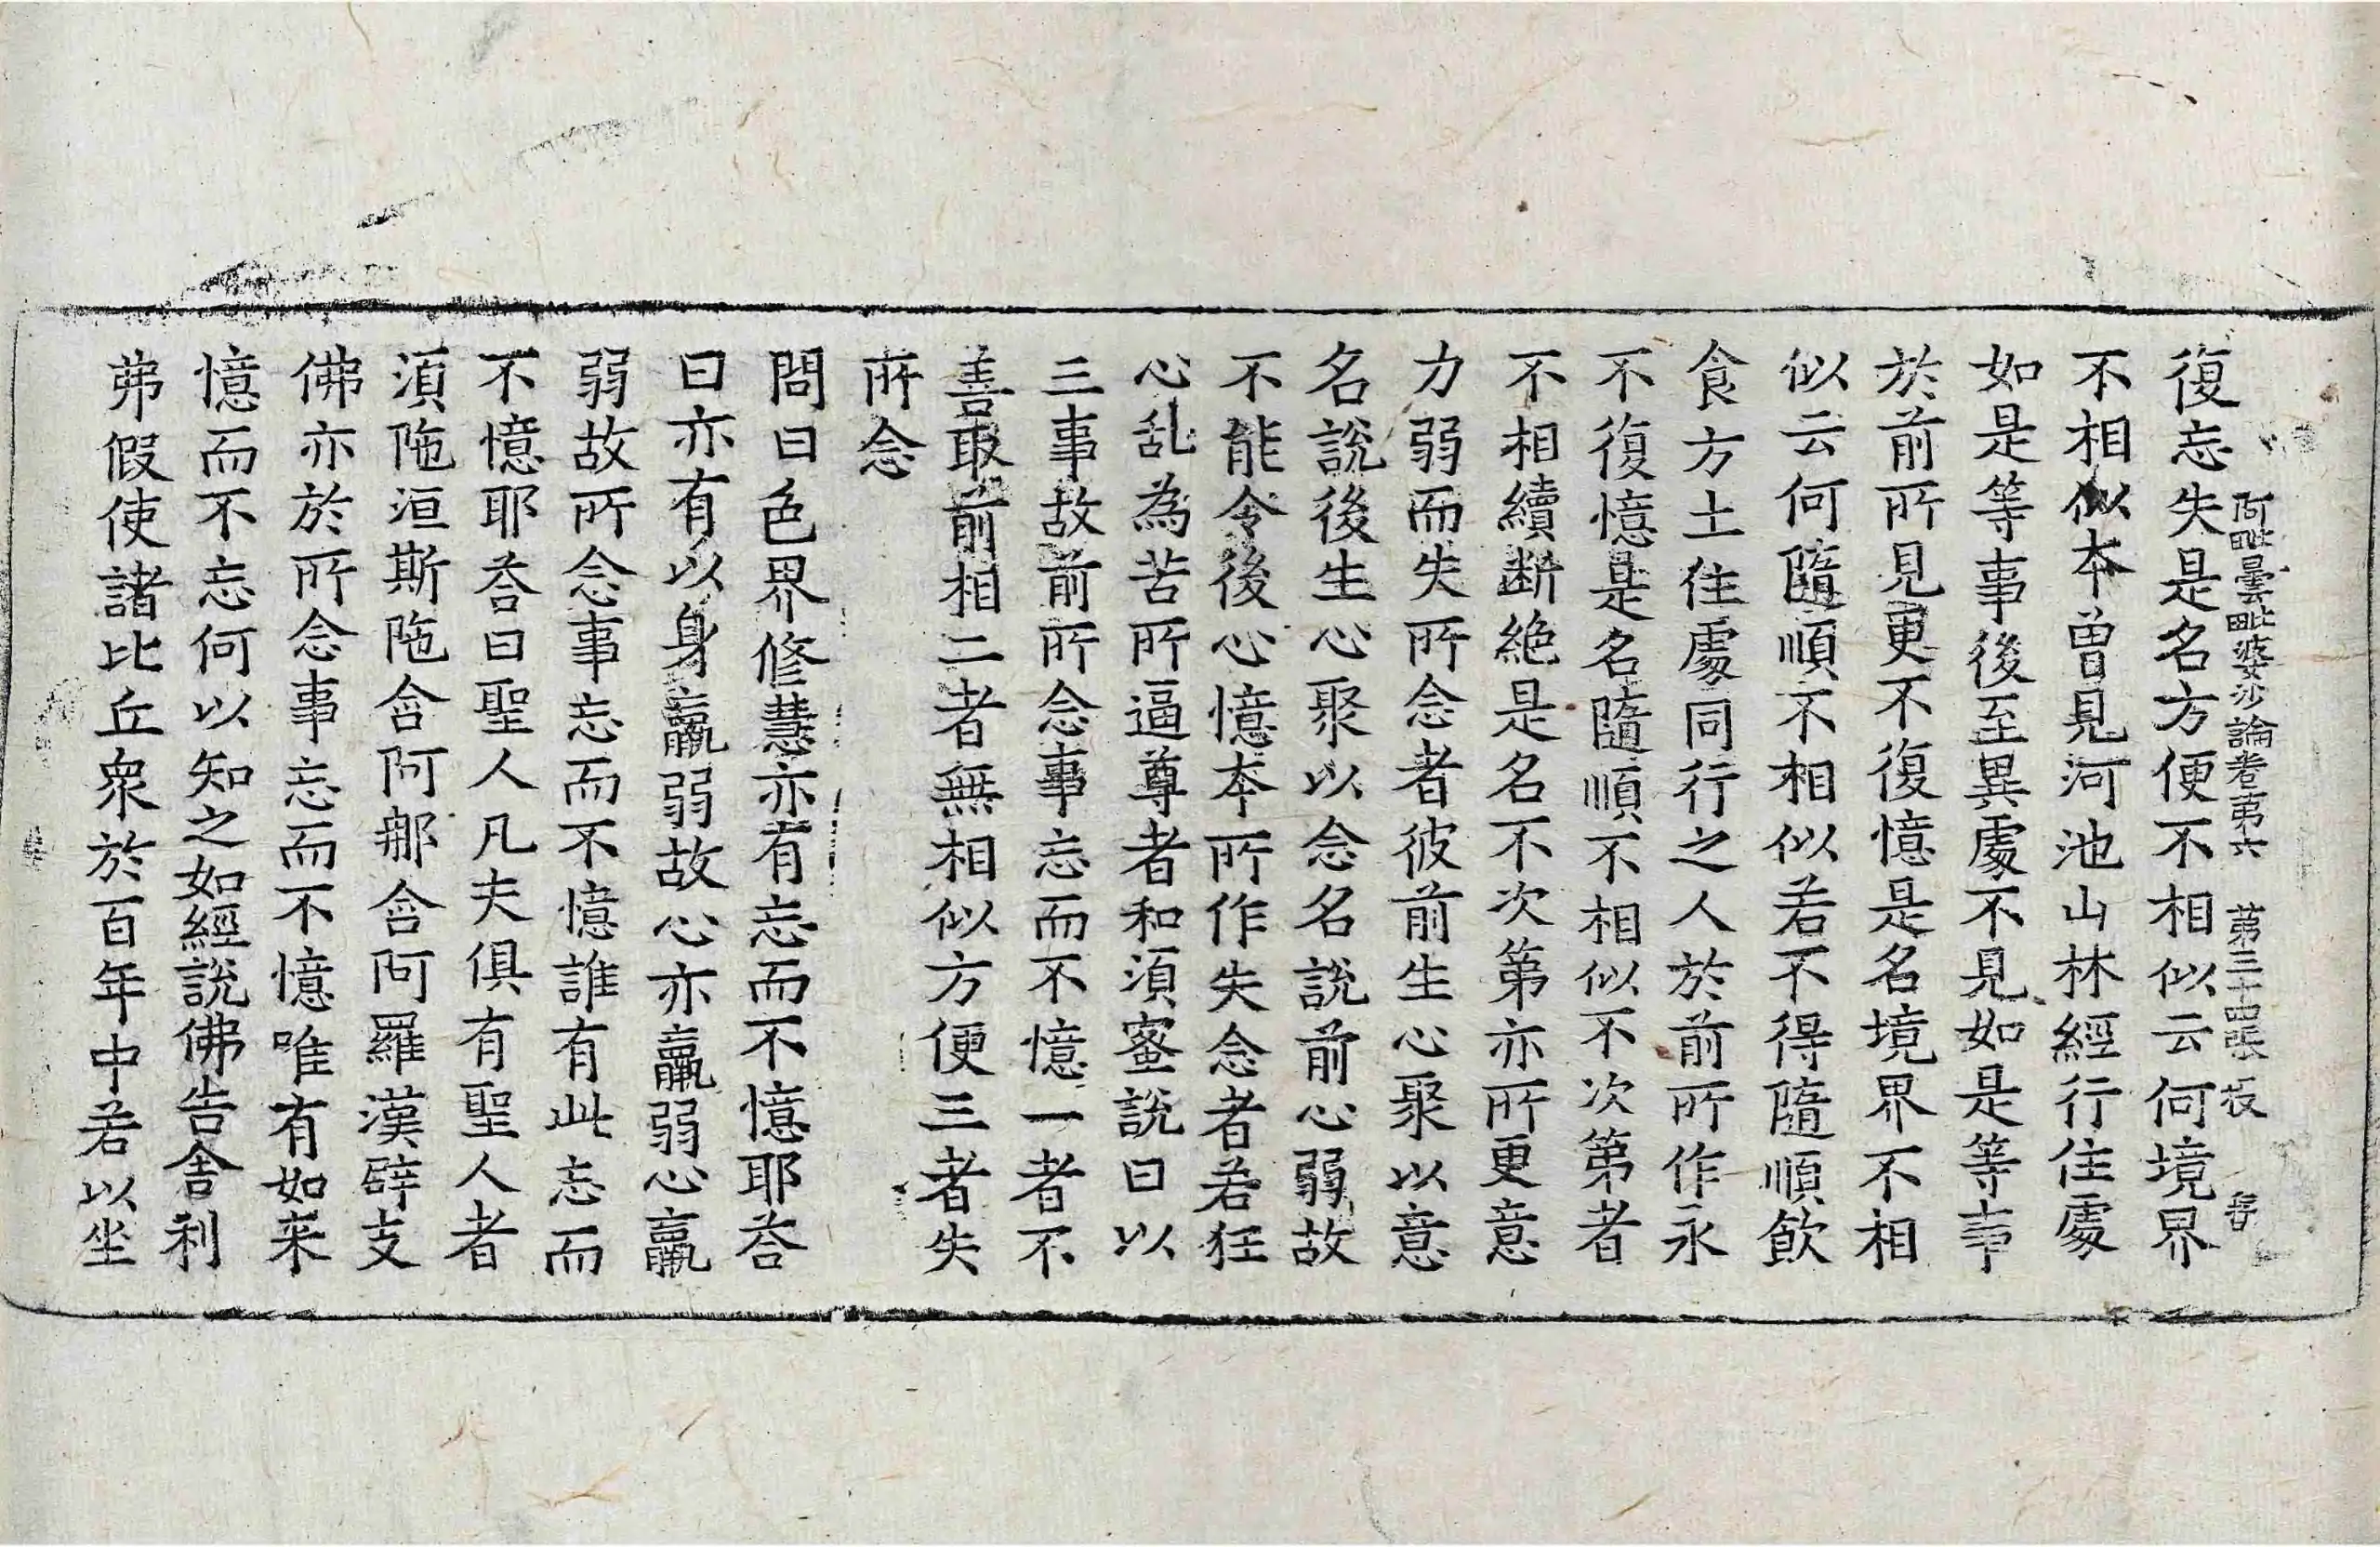 阿毗曇毗婆沙論卷第六 第三十四張 在
復忘失是名方便不相似云何境界
不相似本曾見河池山林經行住處
如是等事後至異處不見如是等事
於前所見更不復憶是名境界不相
似云何隨順不相似若不得隨順飲
食方土住處同行之人於前所作永
不復憶是名隨順不相似不次第者
不相續断絶是名不次第亦所更意
力弱而失所念者彼前生心聚以意
名說後生心聚以念名說前心弱故
不能令後心憶本所作失念者若狂
心乱為苦所逼尊者和湏蜜說曰以
三事故前所念事忘而不憶一者不
善取前相二者無相似方便三者失
所念
問曰色界修慧亦有忘而不憶耶荅
曰亦有以身羸弱故心亦羸弱心羸
弱故所念事忘而不憶誰有此忘而
不憶耶荅曰聖人凡夫俱有聖人者
湏陁洹斯陁含阿那含阿羅漢辟支
佛亦於所念事忘而不憶唯有如来
憶而不忘何以知之如經說佛告舍利
弗假使諸比丘衆於百年中若以坐